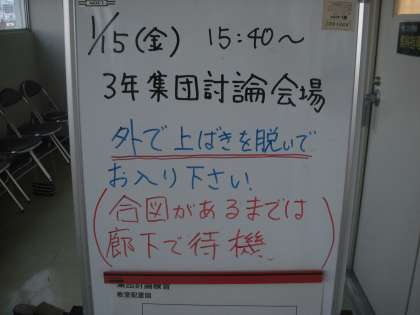 1/15(金) 15:40～
3年集団討論会場
外で上ばきを脱いで
お入り下さい
(合図があるまでは
廊下で待機)
集団討論練習
教室配置図